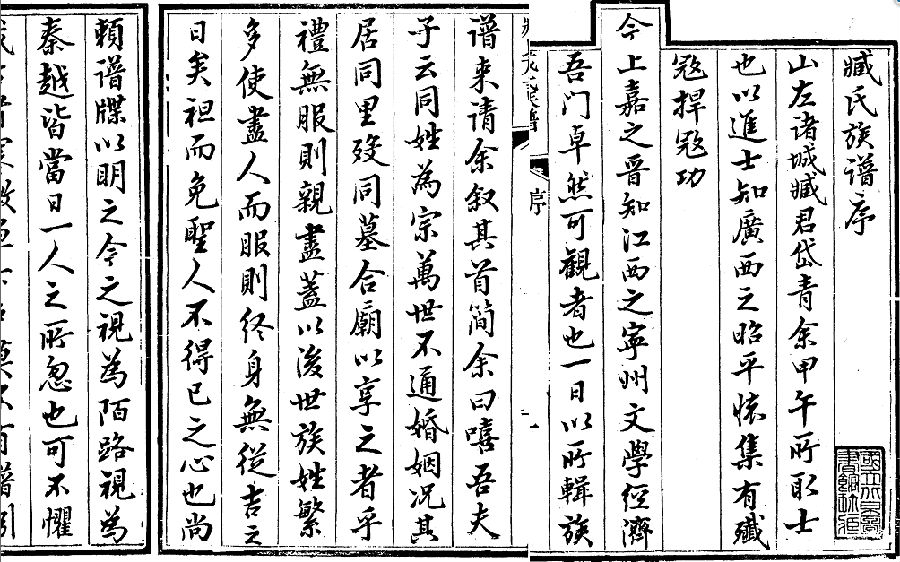 臧氏族譜序
山左諸城臧君岱青余甲午所取士
也以進士知廣西之昭平懷集有殲
寇捍寇功
今上嘉之晉知江西之寧州文學經濟
吾門卓然可觀者也一日以所輯族
序
譜来請余叙其首簡余曰嘻吾夫
子云同姓為宗萬世不通婚姻况其
居同里歿同墓合廟以享之者乎
禮無服則親盡蓋以後世族姓繁
多使盡人而服則終身無從吉之
日矣袒而免聖人不得已之心也尚
賴譜牒以明之今之視為陌路視為
秦越皆當日一人之所忽也可不懼